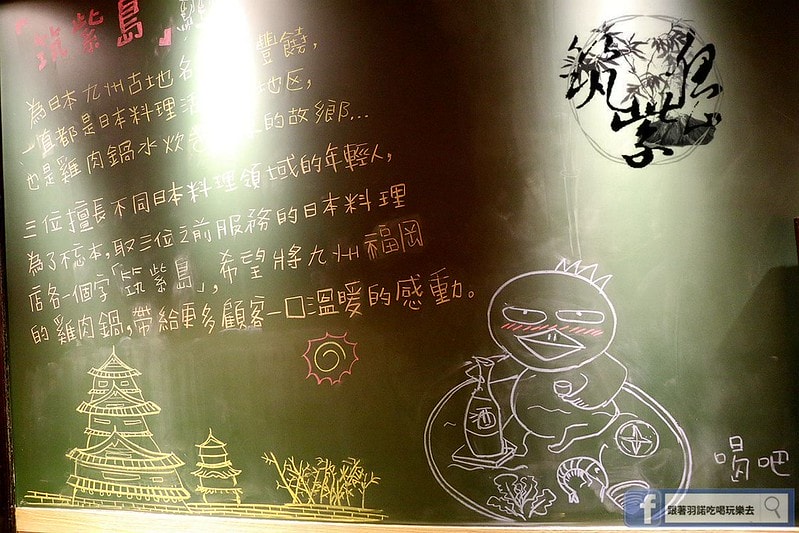 「筑紫島」
為日本九州古地名 豐饒,
一直都是日本料理 地区,
也是雞肉鍋水炊 的故鄉...
三位擅長不同日本料理領域的年輕人,
為了不忘本,取三位之前服務的日本料理
店各一個字「筑紫島」,希望將九州福岡
的雞肉鍋,帶給更多顧客一口溫暖的感動。
筑紫島
酒
喝吧
f 跟著羽諾吃喝玩樂去